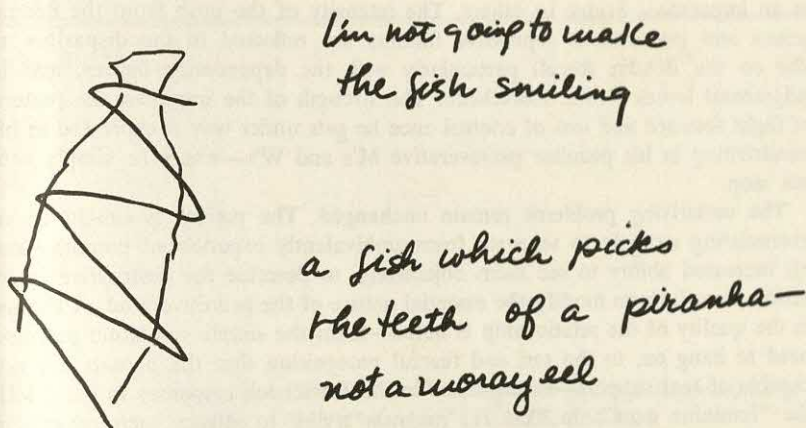 I'm not going to make
the fish smiling
a fish which picks
the teeth of a piranha—
not a moray eel